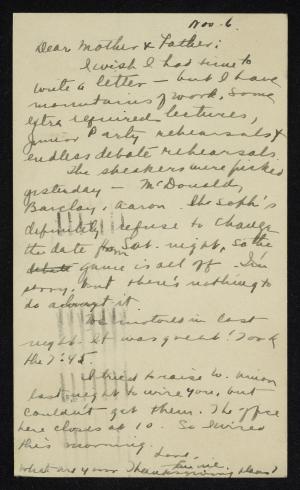 Nov. 6.
Dear Mother & Father:
I wish I had time to
write a letter — but I have
mountains of work, some
extra required lectures,
Junior Party rehearsals &
endless debate rehearsals.
The speakers were picked
yesterday — McDonald,
Barclay, Aaron. The Soph's
definitely refuse to change
the date from Sat. night, so the
debate game is all off. I'm
sorry, but there's nothing to
do about it.
We motored in last
night. It was great! Took
the 7:45.
I tried to raise W. Union
last night to wire you, but
couldn't get them. The office
here closes at 10. So I wired
this morning.
Love,
What are your Thanksgiving plans?